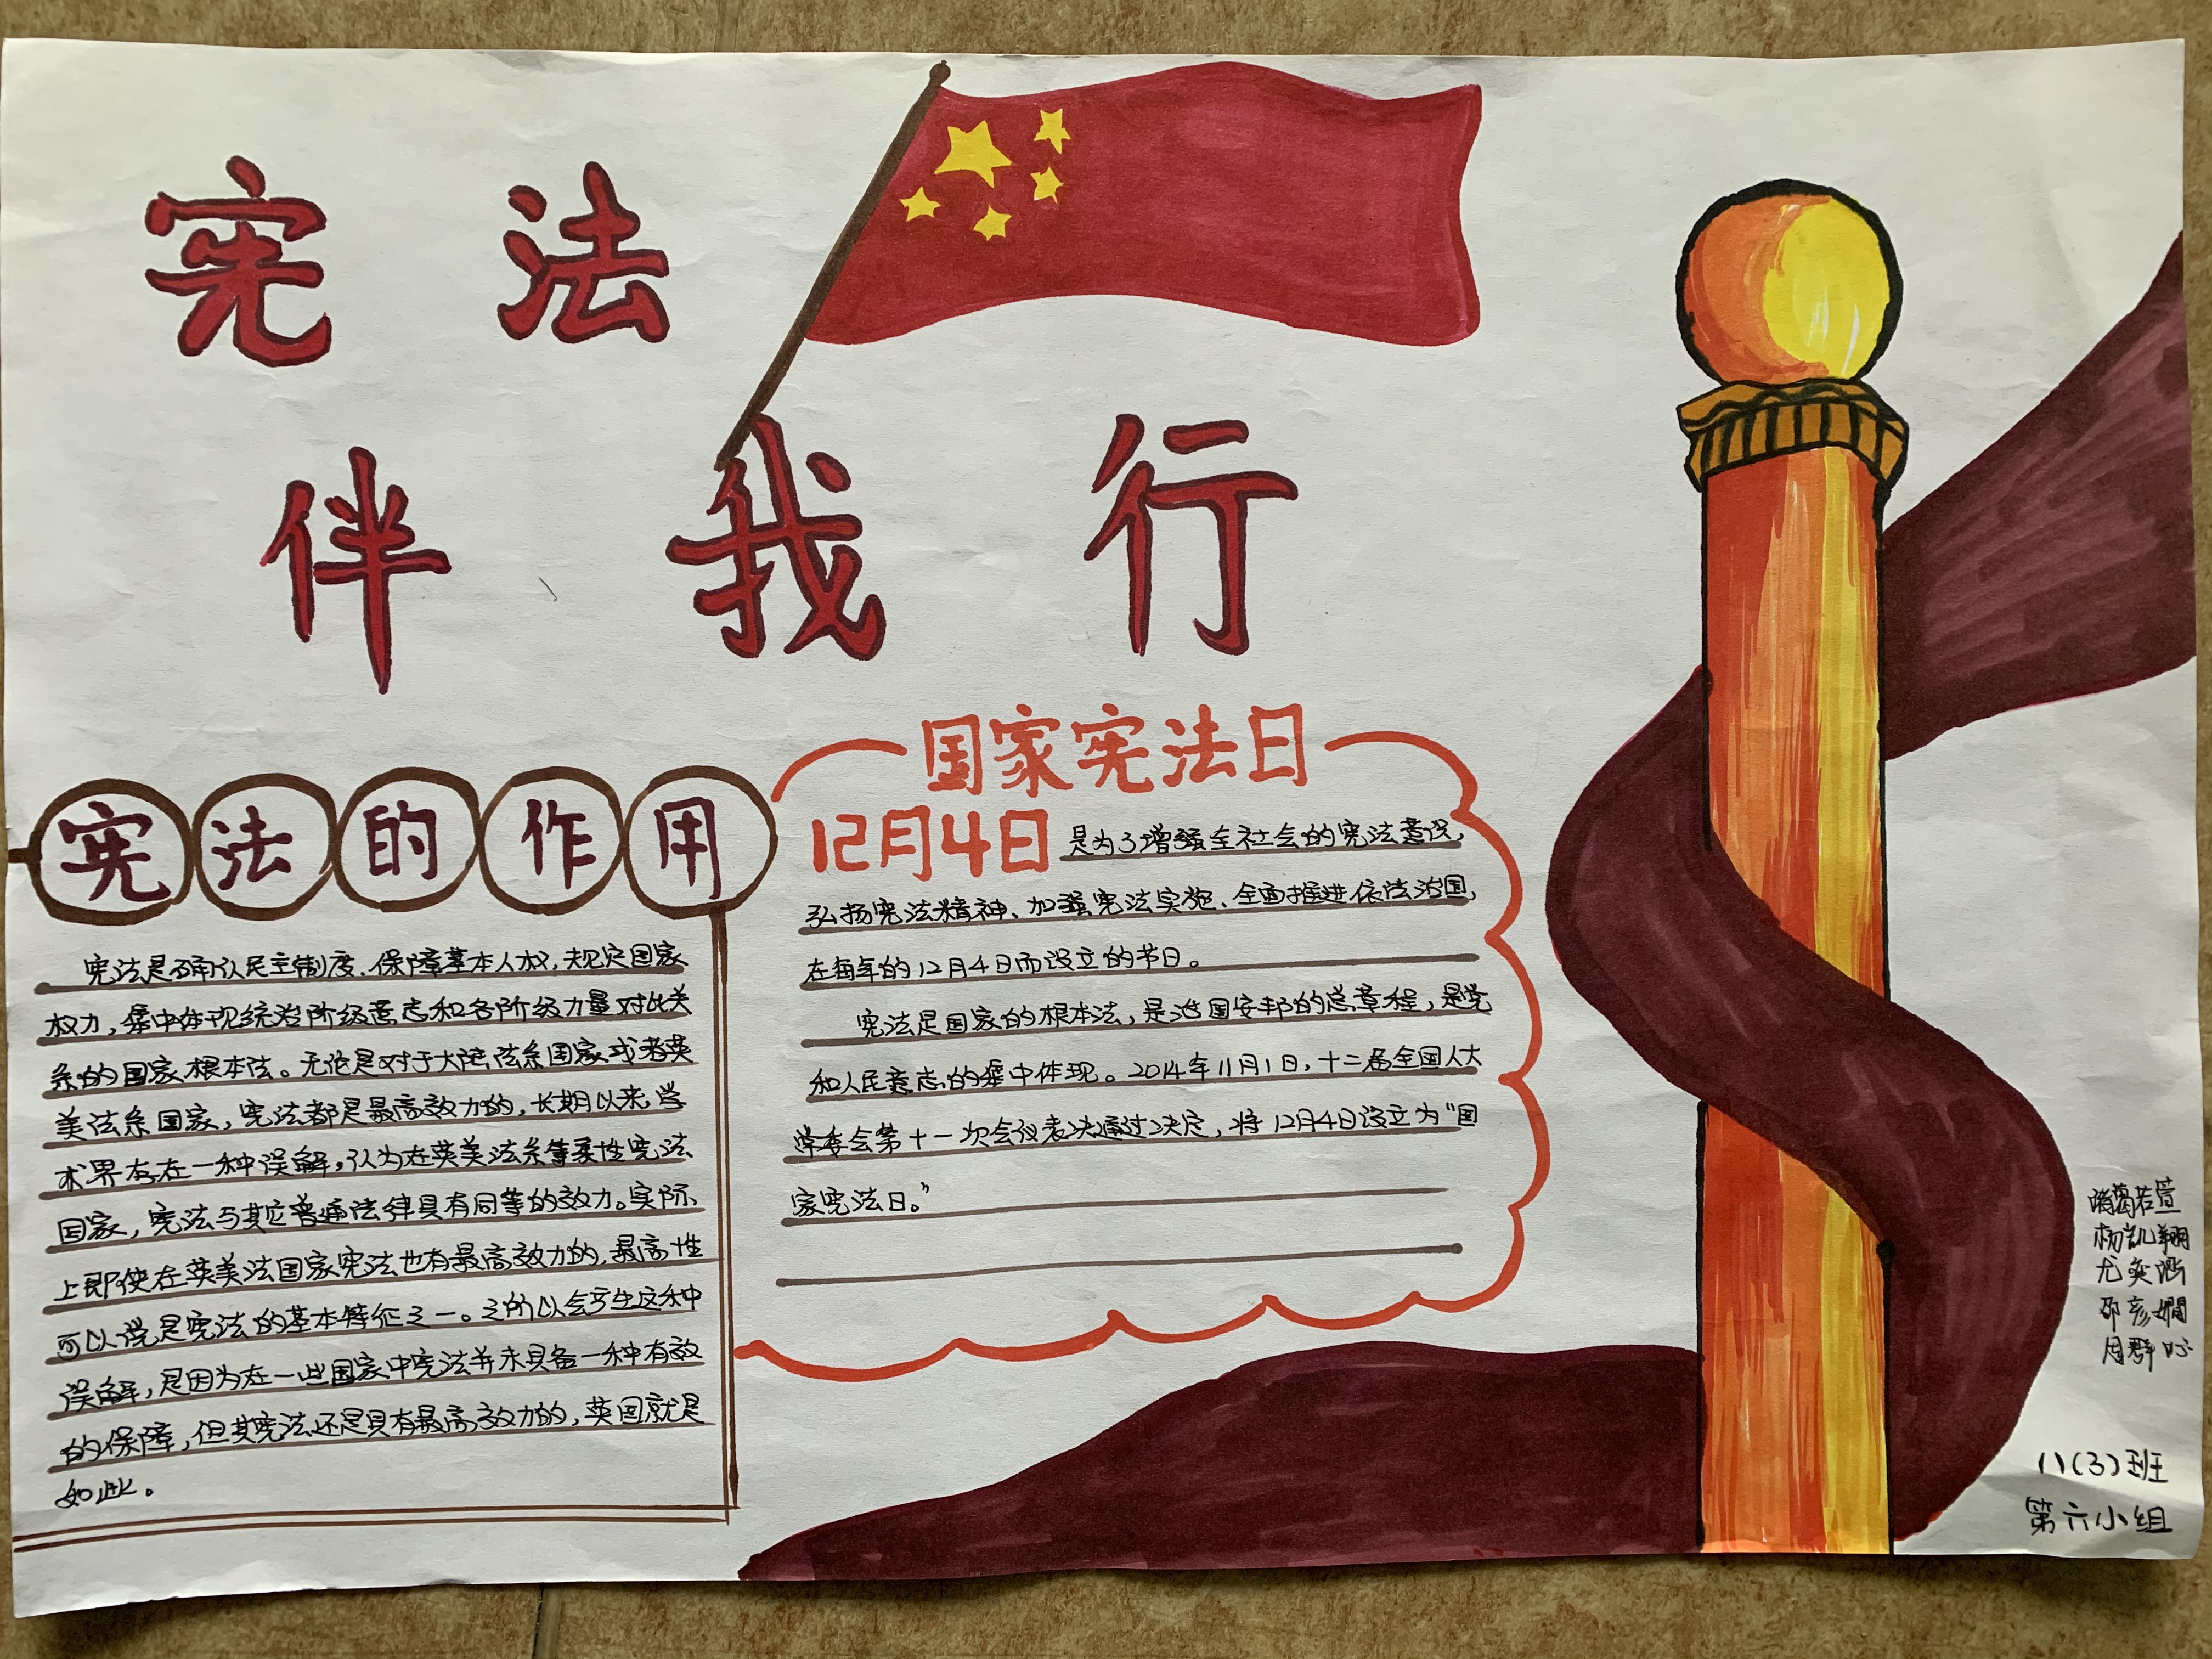 宪法
伴我行
宪法的作用
宪法是确认民主制度、保障基本人权,规定国家
权力,集中体现统治阶级意志和各阶级力量对比关
系的国家根本法。无论是对于大陆法系国家或者英
美法系国家,宪法都是最高效力的,长期以来,学
术界存在一种误解,认为在英美法系等柔性宪法
国家,宪法与其它普通法律具有同等的效力。实际
上即使在英美法国家宪法也有最高效力的,最高性
可以说是宪法的基本特征之一。之所以会产生这种
误解,是因为在一些国家中宪法并未具备一种有效
的保障,但其宪法还是具有最高效力的,英国就是
如此。
国家宪法日
12月4日是为了增强全社会的宪法意识,
弘扬宪法精神、加强宪法实施、全面推进依法治国,
在每年的12月4日而设立的节日。
宪法是国家的根本法,是治国安邦的总章程,是党
和人民意志的集中体现。2014年11月1日,十二届全国人大
常委会第十一次会议表决通过决定,将12月4日设立为“国
家宪法日。”
葛若萱
杨凯翔
尤奕涵
邵彦嫺
周
八(3)班
第六小组